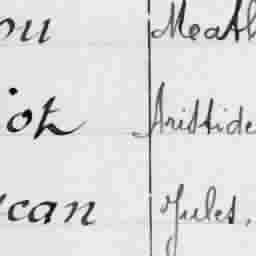 ou Meath
iot Aristide
can Jules.